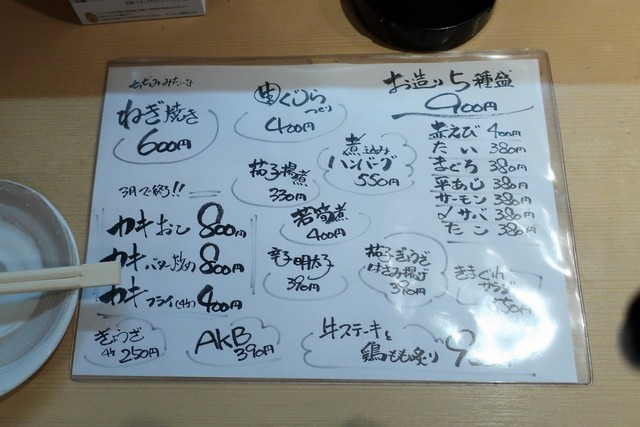 ねぎ焼き
600円
生くじら
400円
お造り5種盛
900円
赤えび 400円
たい 380円
まぐろ 380円
平あじ 380円
サーモン 380円
〆サバ 380円
たこ 380円
煮込み
ハンバーグ
550円
茄子揚煮
330円
若筍煮
400円
辛子明太子
390円
茄子ぎょうざ
はさみ揚げ
390円
3月で終了!!
カキおこ 800円
カキバター炒め 800円
カキフライ(4ケ) 400円
ぎょうざ
4ケ 250円
AKB
390円
牛ステーキと
鶏もも炙り